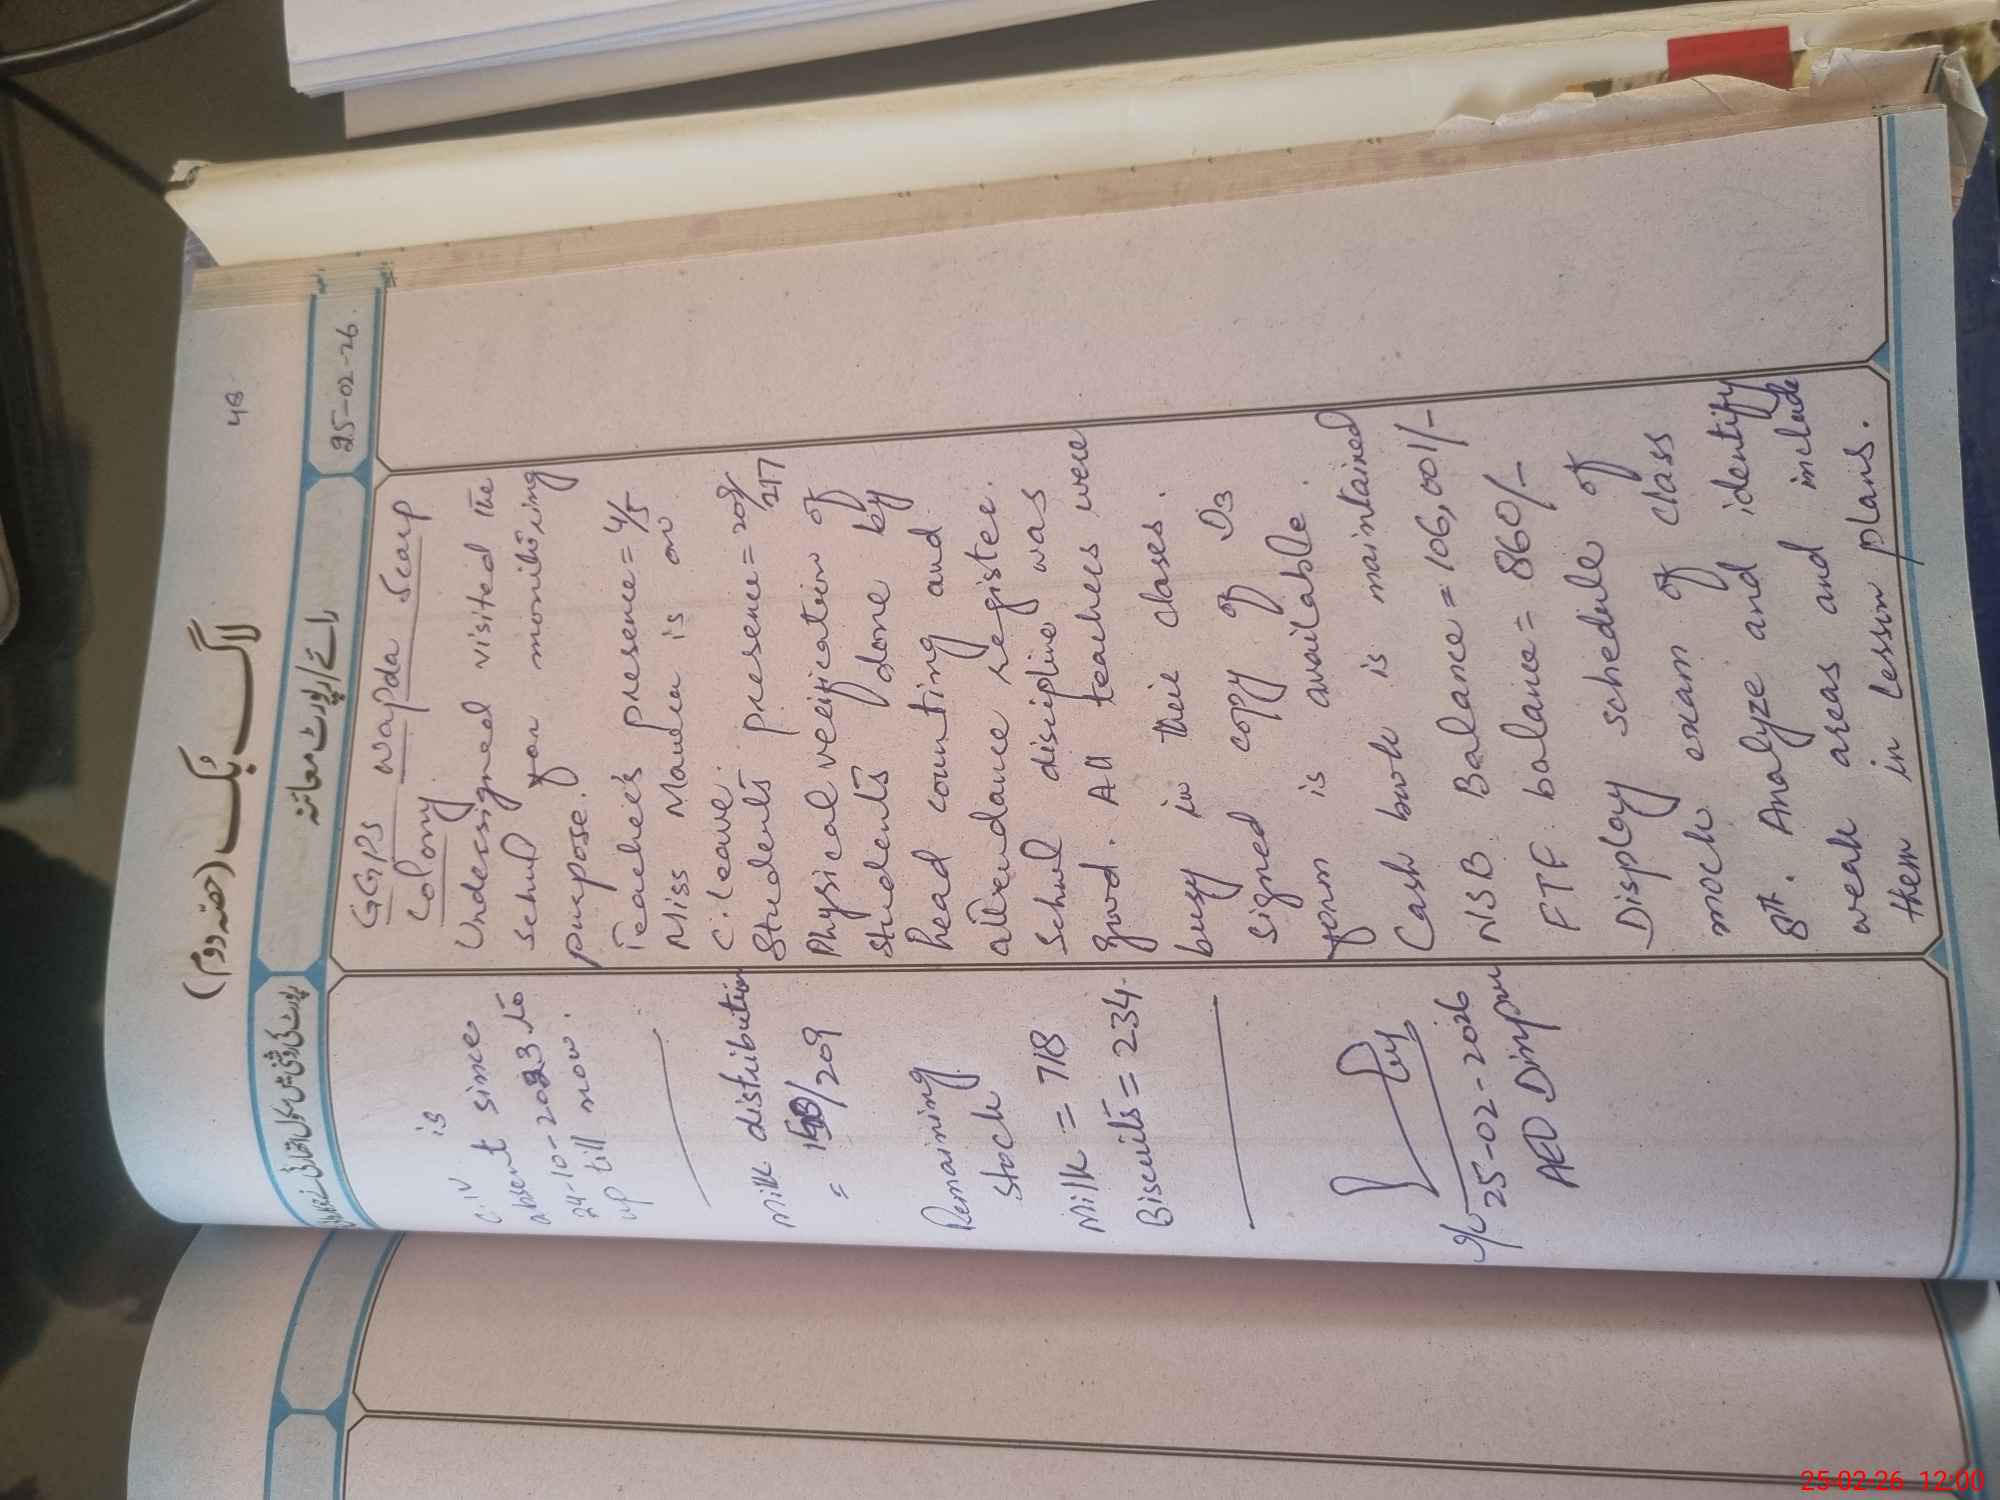 48
لاگ بک (حصّہ دوم)
رائے/رپورٹ معائنہ
25-02-26
GGPS wapda Scarp
Colony
Undersigned visited the
school for monitoring
purpose.
Teacher's presence = 4/5
Miss is on
C. leave.
Students presence = 208/217
Physical verification of
students done by
head counting and
attendance register.
School discipline was
good. All teachers were
busy in their classes.
signed copy of D3
form is available.
Cash book is maintained
NSB Balance = 106,001/-
FTF balance = 860/-
Display schedule of
mock exam of class
8th. Analyze and identify
weak areas and include
them in lesson plans.
C.IV is
absent since
24-10-2023 to
up till now.
Milk distribution
= /209
Remaining
Stock
Milk = 718
Biscuits = 234.
25-02-2026
AEO Dinpur
25-02-26 12:00